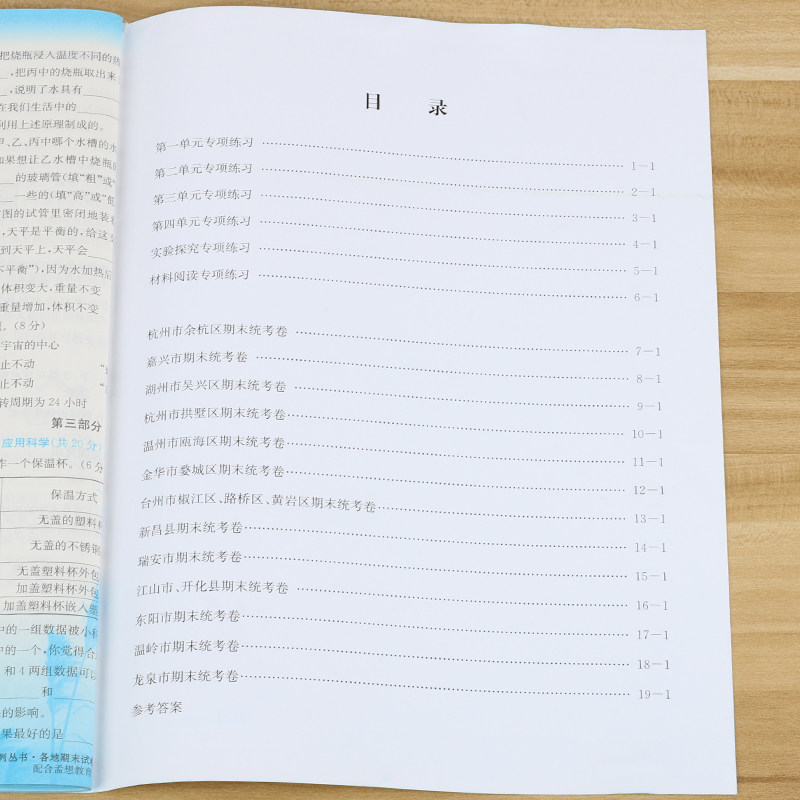 把烧瓶浸入温度不同的热
,把丙中的烧瓶取出来
,说明了水具有
在我们生活中的
利用上述原理制成的。
甲、乙、丙中哪个水槽的水
如果想让乙水槽中烧瓶的
的玻璃管(填“粗”或“
一些的(填“高”或“低
图的试管里密闭地装
,天平是平衡的,给这
到天平上,天平会
不平衡”),因为水加热后
体积变大,重量不变
重量增加,体积不变
。(8分)
宇宙的中心
止不动
止不动
转周期为24小时
第三部分
应用科学(共20分)
作一个保温杯。(6分
保温方式
无盖的塑料杯
无盖的不锈钢
无盖塑料杯外包
加盖塑料杯外包
加盖塑料杯嵌入
中的一组数据被小科
中的一个,你觉得合
和4两组数据可以
和
的影响。
果最好的是
列丛书·各地期末试卷
配合孟想教育
目 录
第一单元专项练习 1-1
第二单元专项练习 2-1
第三单元专项练习 3-1
第四单元专项练习 4-1
实验探究专项练习 5-1
材料阅读专项练习 6-1
杭州市余杭区期末统考卷 7-1
嘉兴市期末统考卷 8-1
湖州市吴兴区期末统考卷 9-1
杭州市拱墅区期末统考卷 10-1
温州市瓯海区期末统考卷 11-1
金华市婺城区期末统考卷 12-1
台州市椒江区、路桥区、黄岩区期末统考卷 13-1
新昌县期末统考卷 14-1
瑞安市期末统考卷 15-1
江山市、开化县期末统考卷 16-1
东阳市期末统考卷 17-1
温岭市期末统考卷 18-1
龙泉市期末统考卷 19-1
参考答案